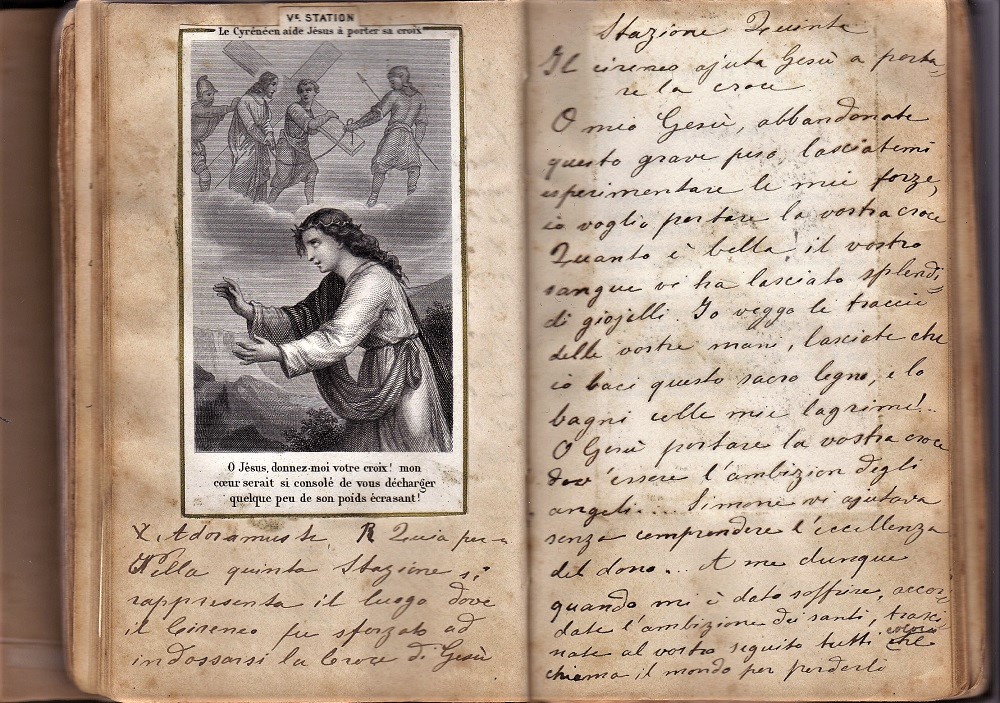 Ve. STATION
Le Cyrénéen aide Jésus à porter sa croix
O Jésus, donnez-moi votre croix! mon
cœur serait si consolé de vous décharger
quelque peu de son poids écrasant!
V. Adoramus te R Quia per
Nella quinta Stazione si
rappresenta il luogo dove
il Cireneo fu sforzato ad
indossarsi la Croce di Gesù
Stazione Quinta
Il cireneo ajuta Gesù a porta-
re la croce
O mio Gesù, abbandonate
questo grave peso, lasciatemi
esperimentare le mie forze,
io voglio portare la vostra croce
Quanto è bella il vostro
sangue vi ha lasciato splendi-
di giojelli. Io veggo le traccie
delle vostre mani, lasciate che
io baci questo sacro legno, e lo
bagni colle mie lagrime!..
O Gesù portare la vostra croce
dov'essere l'ambizion degli
angeli.... Simone vi ajutava
senza comprendere l'eccellenza
del dono... A me dunque
quando mi è dato soffrire, accor-
date l'ambizione dei santi, trasci
nate al vostro seguito tutti coloro che
chiama il mondo per perderli